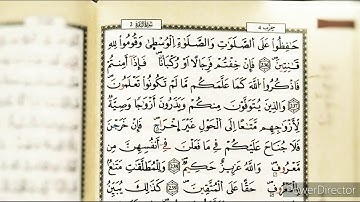 حزب ٤
سورة البقرة ٢
حَـٰفِظُوا۟ عَلَى ٱلصَّلَوَٰتِ وَٱلصَّلَوٰةِ ٱلْوُسْطَىٰ وَقُومُوا۟ لِلَّهِ
قَـٰنِتِينَ ٢٣٨ فَإِنْ خِفْتُمْ فَرِجَالًا أَوْ رُكْبَانًا فَإِذَآ أَمِنتُمْ
فَٱذْكُرُوا۟ ٱللَّهَ كَمَا عَلَّمَكُم مَّا لَمْ تَكُونُوا۟ تَعْلَمُونَ ٢٣٩
وَٱلَّذِينَ يُتَوَفَّوْنَ مِنكُمْ وَيَذَرُونَ أَزْوَٰجًا وَصِيَّةً
لِّأَزْوَٰجِهِم مَّتَـٰعًا إِلَى ٱلْحَوْلِ غَيْرَ إِخْرَاجٍ فَإِنْ خَرَجْنَ
فَلَا جُنَاحَ عَلَيْكُمْ فِى مَا فَعَلْنَ فِىٓ أَنفُسِهِنَّ مِن
مَّعْرُوفٍ وَٱللَّهُ عَزِيزٌ حَكِيمٌ ٢٤٠ وَلِلْمُطَلَّقَـٰتِ مَتَـٰعٌۢ
بِٱلْمَعْرُوفِ حَقًّا عَلَى ٱلْمُتَّقِينَ ٢٤١ كَذَٰلِكَ يُبَيِّنُ
PowerDirector